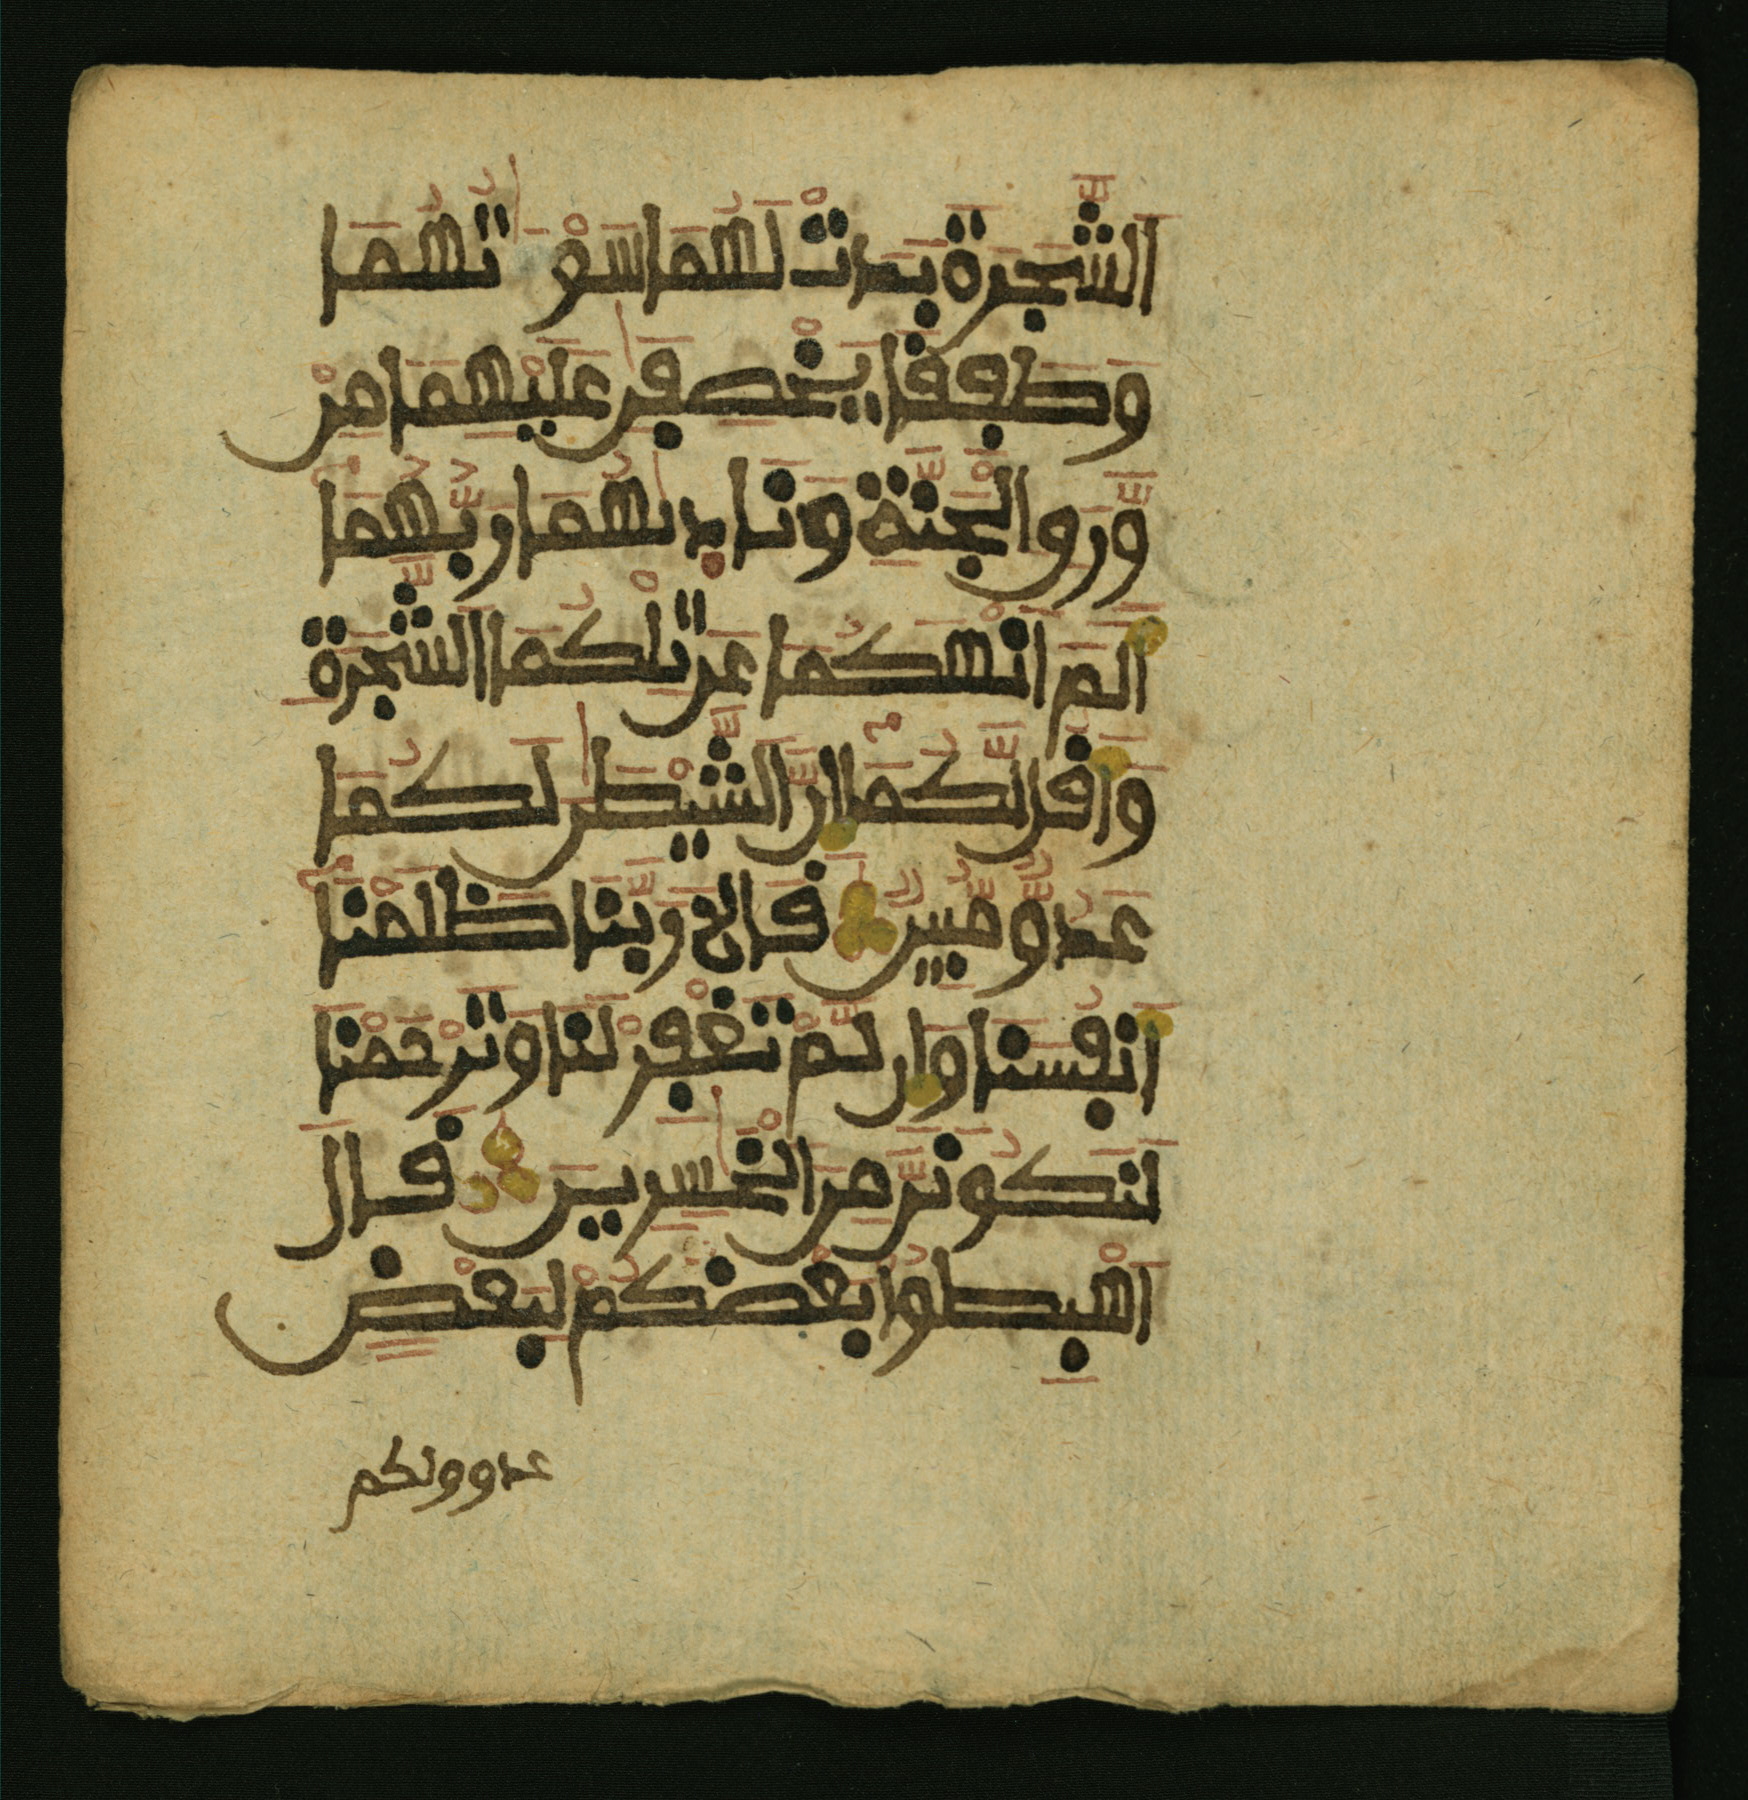 الشَّجَرَةَ بَدَتْ لَهُمَا سَوْءَ تُهُمَا
وَطَفِقَا يَخْصِفَٰنِ عَلَيْهِمَا مِنْ
وَّرَقِ الْجَنَّةِ وَنَادٜىٰهُمَا رَبُّهُمَا
أَلَمْ أَنْهَكُمَا عَن تِلْكُمَا الشَّجَرَةِ
وَأَقُل لَّكُمَا إِنَّ الشَّيْطَٰنَ لَكُمَا
عَدُوٌّ مُّبِينٌ قَالَا رَبَّنَا ظَلَمْنَا
أَنفُسَنَا وَإِن لَّمْ تَغْفِرْ لَنَا وَتَرْحَمْنَا
لَنَكُونَنَّ مِنَ الْخَٰسِرِينَ قَالَ
اهْبِطُوا بَعْضُكُمْ لِبَعْضٍ
عدو ولكم